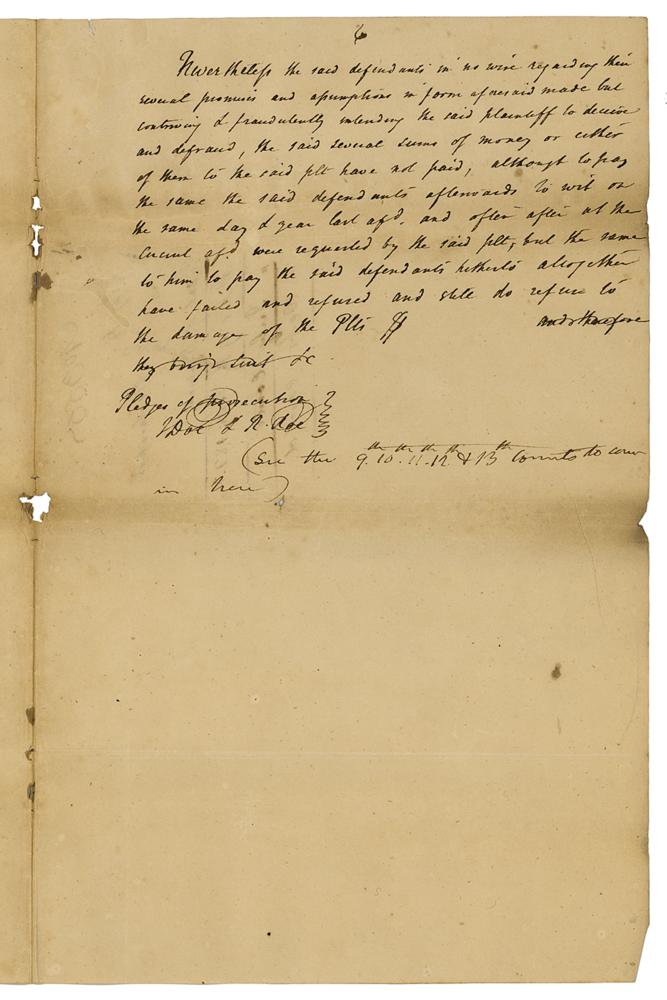 6
Nevertheless the said defendants in no wise regarding their
several promises and assumptions in form aforesaid made but
contriving & fraudulently intending the said plaintiff to deceive
and defraud, the said several sums of money or either
of them to the said plt have not paid, although to pay
the same the said defendants afterwards to wit on
the same day & year last afd. and often after at the
Circuit afd were requested by the said plt, but the same
to him to pay the said defendants hitherto altogether
have failed and refused and still do refuse to
the damage of the Plts $ and therefore
they brings suit &c
Pledges of prosecution
J Doe & R. Roe
(See the 9th 10th 11th 12th & 13th Counts to come
in here)